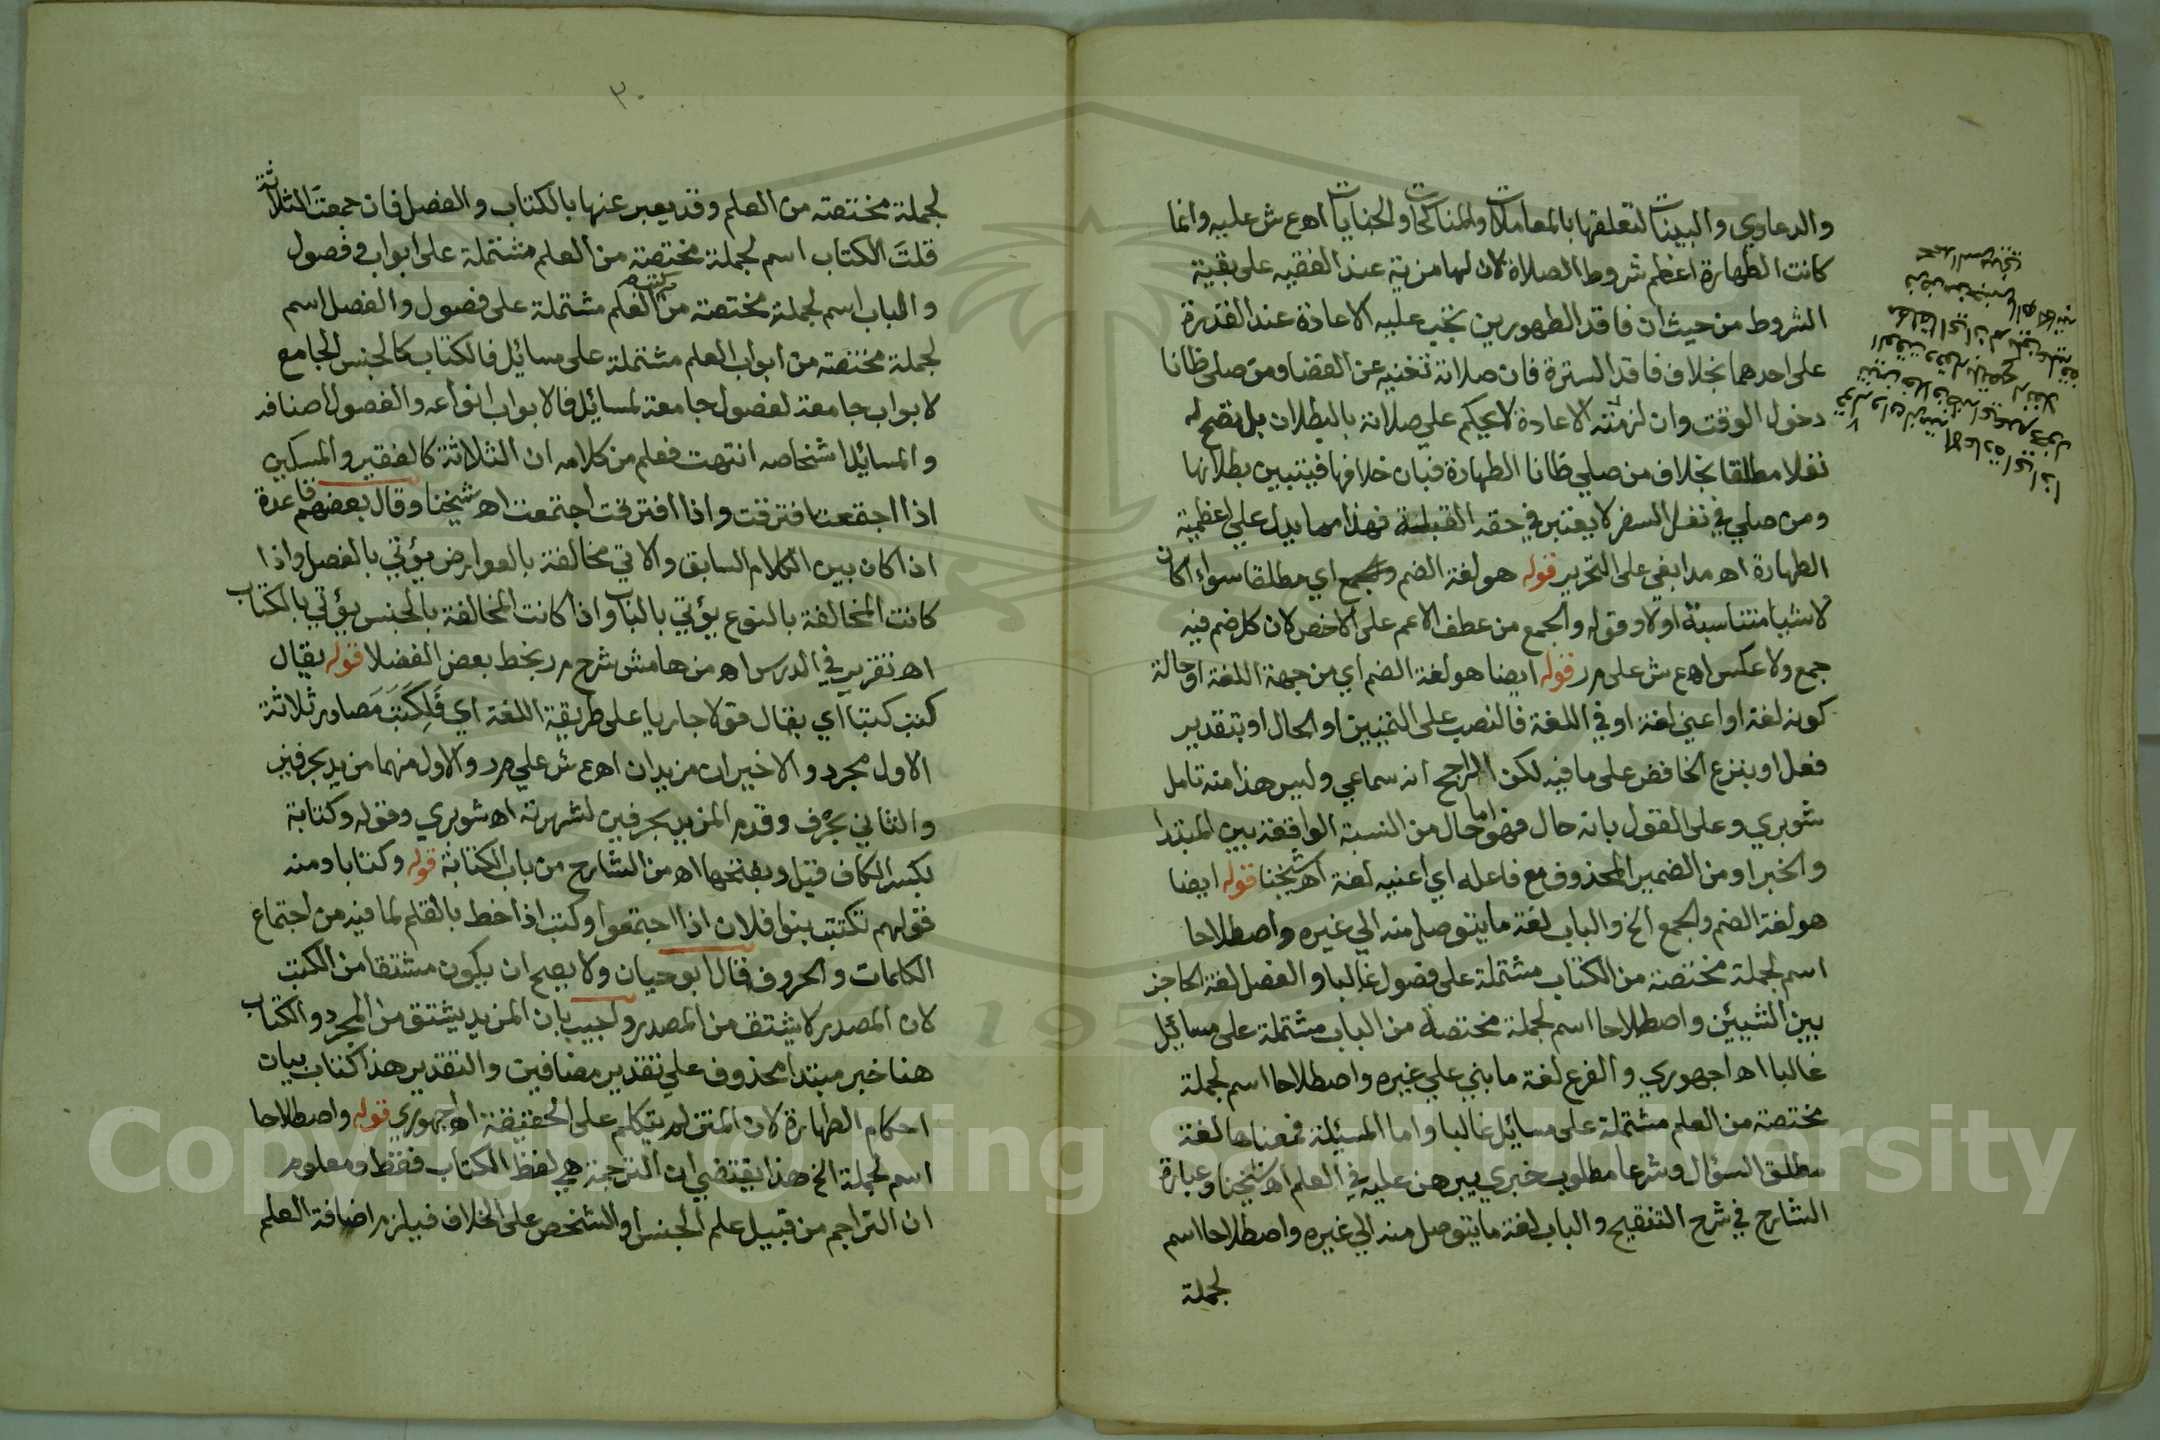 والدعاوي والبينات لتعلقها بالمعاملات والمناكحات والجنايات اه ع ش عليه وانما
كانت الطهارة اعظم شروط الصلاة لان لها مزية عند الفقيه على بقية
الشروط من حيث ان فاقد الطهورين تجب عليه الاعادة عند القدرة
على احدهما بخلاف فاقد السترة فان صلاته تغنيه عن القضا ومن صلى ظانا
دخول الوقت وان لزمته الاعادة لا يحكم على صلاته بالبطلان بل تصح له
نفلا مطلقا بخلاف من صلي ظانا الطهارة فبان خلافها فيتبين بطلانها
ومن صلي في نفل السفر لا يعتبر في حقه القبلة فهذا مما يدل علي اعظمية
الطهارة اه مدابغي على التحرير قوله هو لغة الضم والجمع اي مطلقا سواء اكان
لاشيا متناسبة اولا وقوله والجمع من عطف الاعم على الاخص لان كل ضم فيه
جمع ولا عكس اه ع ش على م ر قوله ايضا هو لغة الضم اي من جهة اللغة او حالة
كونه لغة او اعني لغة او في اللغة فالنصب على التمييز او الحال او بتقدير
فعل او بنزع الخافض على ما فيه لكن الراجح انه سماعي وليس هذا منه تامل
شوبري وعلى القول بانه حال فهو اما حال من النسبة الواقعة بين المبتدا
والخبر او من الضمير المحذوف مع فاعله اي اعنيه لغة اه شيخنا قوله ايضا
هو لغة الضم والجمع الخ والباب لغة ما يتوصل منه الي غيره واصطلاحا
اسم لجملة مختصة من الكتاب مشتملة على فصول غالبا والفصل لغة الحاجز
بين الشيئين واصطلاحا اسم لجملة مختصة من الباب مشتملة على مسائل
غالبا اه اجهوري والفرع لغة ما بني علي غيره واصطلاحا اسم لجملة
مختصة من العلم مشتملة على مسائل غالبا واما المسئلة فمعناها لغة
مطلق السؤال وشرعا مطلوب خبري يبرهن عليه في العلم اه شيخنا وعبارة
الشارح في شرح التنقيح والباب لغة ما يتوصل منه الي غيره واصطلاحا اسم
لجملة
٣٠
لجملة مختصة من العلم وقد يعبر عنها بالكتاب والفصل فان جمعت الثلاثة
قلت الكتاب اسم لجملة مختصة من العلم مشتملة على ابواب وفصول
والباب اسم لجملة مختصة من العلم مشتملة على فصول والفصل اسم
لجملة مختصة من ابواب العلم مشتملة على مسائل فالكتاب كالجنس الجامع
لابواب جامعة لفصول جامعة لمسائل فالابواب انواعه والفصول اصنافه
والمسائل اشخاصه انتهت فعلم من كلامه ان الثلاثة كالفقير والمسكين
اذا اجتمعت افترقت واذا افترقت اجتمعت اه شيخنا وقال بعضهم قاعدة
اذا كان بين الكلام السابق والاتي مخالفة بالعوارض يؤتي بالفصل واذا
كانت المخالفة بالنوع يؤتي بالباب واذا كانت المخالفة بالجنس يؤتي بالكتاب
اه تقرير في الدرس اه من هامش شرح م ر بخط بعض الفضلا قوله يقال
كتب كتبا اي يقال قولا جاريا على طريقة اللغة اي فلكتب مصادر ثلاثة
الاول مجرد والاخيران مزيدان اه ع ش علي م ر والاول منهما مزيد بحرفين
والثاني بحرف وقدم المزيد بحرفين لشهرته اه شوبري وقوله وكتابة
بكسر الكاف قيل وبفتحها اه من الشارح من باب الكتابة قوله وكتابا ومنه
قولهم تكتبت بنوا فلان اذا اجتمعوا وكتب اذا خط بالقلم لما فيه من اجتماع
الكلمات والحروف قال ابو حيان ولا يصح ان يكون مشتقا من الكتب
لان المصدر لا يشتق من المصدر واجيب بان المزيد يشتق من المجرد والكتاب
هنا خبر مبتدا محذوف علي تقدير مضافين والتقدير هذا كتاب بيان
احكام الطهارة لان المتن لم يتكلم على الحقيقة اه اجهوري قوله واصطلاحا
اسم لجملة الخ هذا يقتضي ان الترجمة هي لفظ الكتاب فقط ومعلوم
ان التراجم من قبيل علم الجنس او الشخص على الخلاف فيلزم اضافة العلم
Copyright © King Saud University
1957